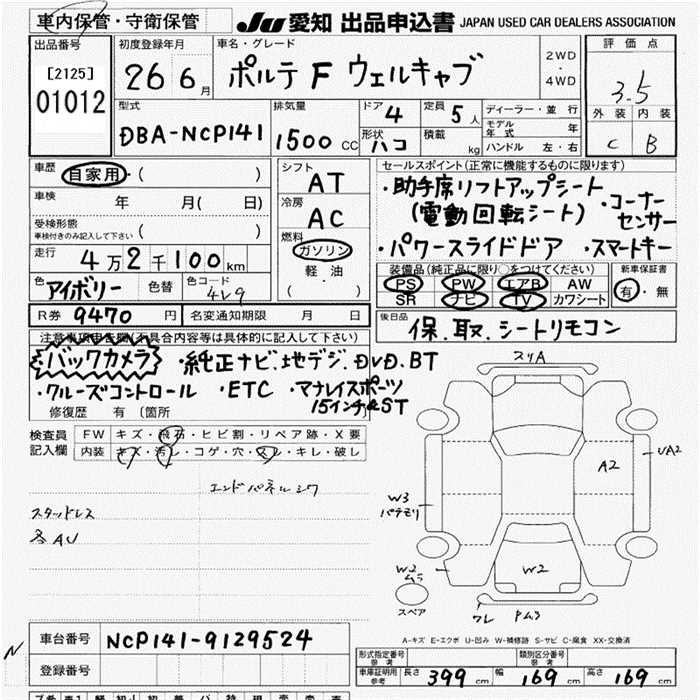 車内保管・守衛保管
JU 愛知 出品申込書 JAPAN USED CAR DEALERS ASSOCIATION
出品番号
[2125]
01012
初度登録年月
26 6月
車名・グレード
ポルテ F ウェルキャブ
2WD
・
4WD
評価点
3.5
外装 内装
C B
型式
DBA-NCP141
排気量
1500 CC
ドア 4
形状 ハコ
定員 5 人
積載 kg
ディーラー・並行
モデル年式 年
ハンドル 左・右
車歴 自家用・( )
車検 年 月( 日)
受検形態
車検付きのみ記入して下さい ( )
走行 4万2千100km
色 アイボリー 色替 色コード 4V9
R券 9470 円 名変通知期限 月 日
シフト
AT
冷房
AC
燃料
ガソリン
軽油
( ・ )
セールスポイント(正常に機能するものに限ります)
・助手席リフトアップシート
(電動回転シート) ・コーナーセンサー
・パワースライドドア ・スマートキー
装備品(純正品に限り○をつけてください)
PS PW エアB AW
SR ナビ TV カワシート
新車保証書
有・無
後日品
保、取、シートリモコン
注意事項申告欄(不具合内容等は具体的に記入して下さい)
バックカメラ ・純正ナビ、地デジ、DVD、BT
・クルーズコントロール ・ETC ・マナレイスポーツ
15インチ&ST
修復歴 有 〔箇所
検査員記入欄
FW キズ・飛石・ヒビ割・リペア跡・X要
内装 キズ・汚レ・コゲ・穴・スレ・キレ・破レ
エンドパネルシワ
スタッドレス
各AU
スリA
A2
UA2
W3
パテモリ
W2
ムラ
W2
スペア
ワレ
Pムラ
A-キズ E-エクボ U-凹み W-補修跡 S-サビ C-腐食 XX-交換済
N
車台番号 NCP141-9129524
登録番号
形式指定番号
参考
類別区分番号
参考
車庫証明用
参考
長さ 399 cm 幅 169 cm 高さ 169 cm